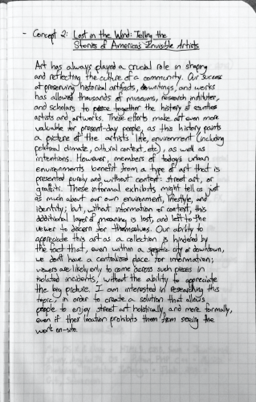 - Concept 2: Lost in the Wind: Telling the
Stories of America's Invisible Artists
Art has always played a crucial role in shaping
and reflecting the culture of a community. Our success
at preserving historical artifacts, writings, and works
has allowed thousands of museums, research institutes,
and scholars to piece together the history of
artists and artworks. These efforts make art even more
valuable for present-day people, as this history paints
a picture of the artist's life, environment (including
political climate, cultural context, etc), as well as
intentions. However, members of today's urban
environments benefit from a type of art that is
presented purely and without context: street art, or
graffiti. These informal exhibits might tell us just
as much about our own environment, lifestyle, and
identity; but, without information or context, this
additional layer of meaning is lost, and left to the
viewer to discern for themselves. Our ability to
appreciate this art as a collection is hindered by
the fact that, even within a specific city or downtown,
we don't have a centralized place for information;
viewers are likely only to come across such pieces in
isolated incidents, without the ability to appreciate
the big picture. I am interested in researching this
topic, in order to create a solution that allows
people to enjoy street art holistically, and more formally,
even if their location prohibits them from seeing the
work on-site.